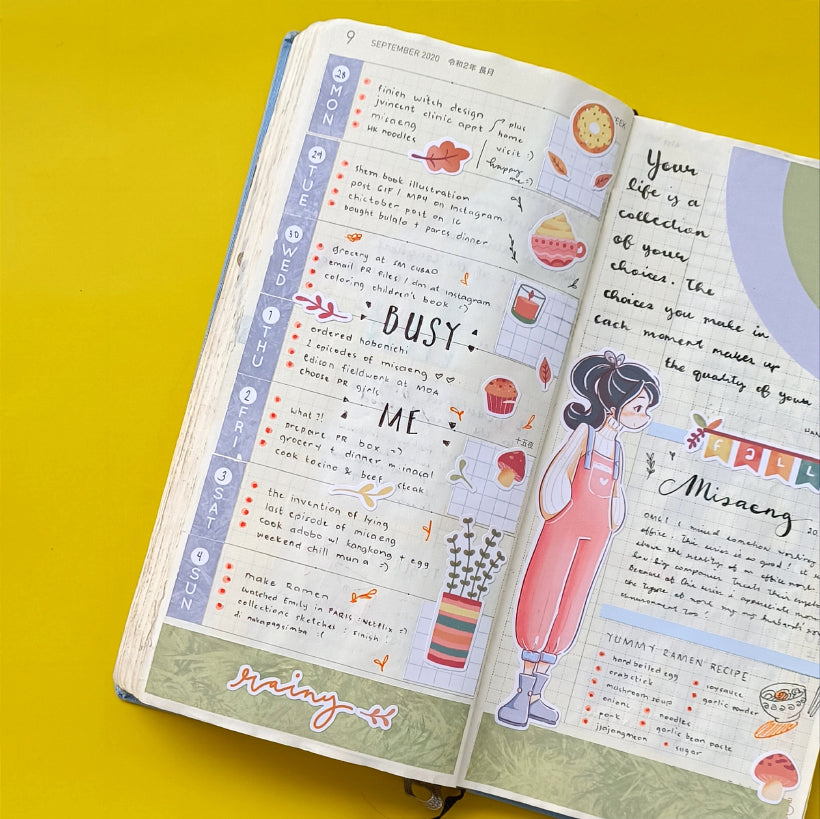 9 SEPTEMBER 2020 令和2年 長月
28 MON
finish witch design
jvincent clinic appt
misaeng
HK noodles
plus
home
visit :)
happy
me :)
29 TUE
shem book illustration
post GIF / MP4 on Instagram
chictober post on IG
bought bulalo + pares dinner
30 WED
grocery at SM CUBAO
email PR files / dm at instagram
coloring children's book :)
1 THU
BUSY
ordered hobonichi
2 episodes of misaeng ♡♡
edison fieldwork at MOA
choose PR girls
2 FRI
ME
十五夜
what?!
prepare PR box :)
grocery + dinner
cook tocino & beef steak
3 SAT
the invention of lying
last episode of misaeng
cook adobo w/ kangkong + egg
weekend chill muna :)
4 SUN
make Ramen
watched Emily in PARIS : Netflix :)
collections sketches : finish!
di nakapagsimba :(
rainy
Your
life is a
collection
of your
choices. The
choices you make in
each moment makes up
the quality of your
FALL
Misaeng
20
OMG! I missed somehow working
office. This series is so good! it
about the reality of an office work
Because of this series i appreciate
environment too!
YUMMY RAMEN RECIPE
hard boiled egg
crabstick
mushroom soup
onions
pork
jjajangmeon
soy sauce
garlic powder
noodles
garlic bean paste
sugar